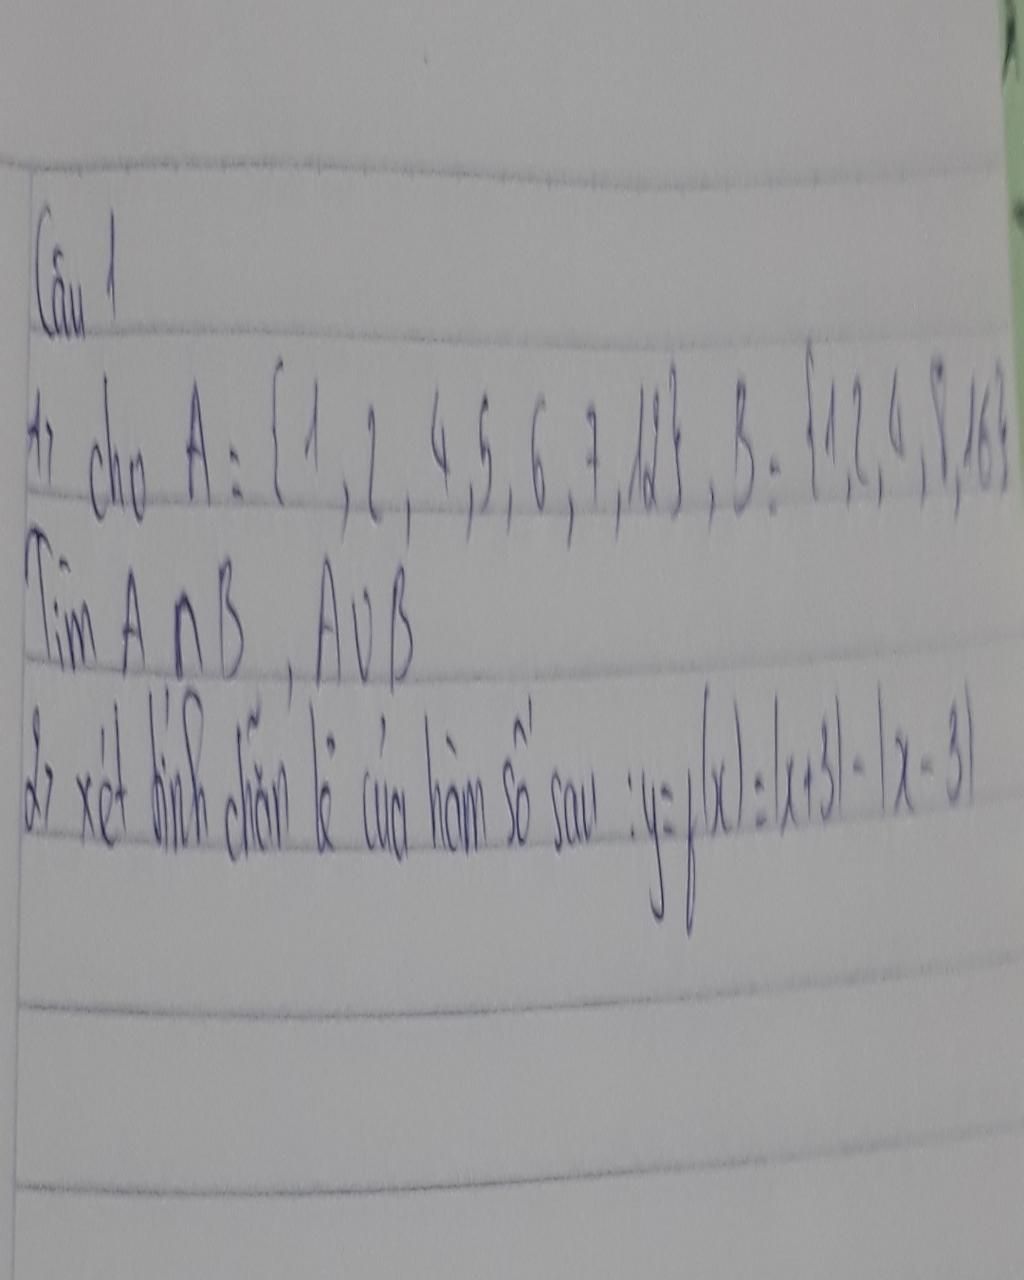 Câu 1
1, cho A = { 1, 2, 4, 5, 6, 7, 12}, B = {1, 2, 4, 8, 16}
Tìm A ∩ B, A ∪ B
2, xét tính chẵn lẻ của hàm số sau : y = f(x) = |x + 3| - |x - 3|